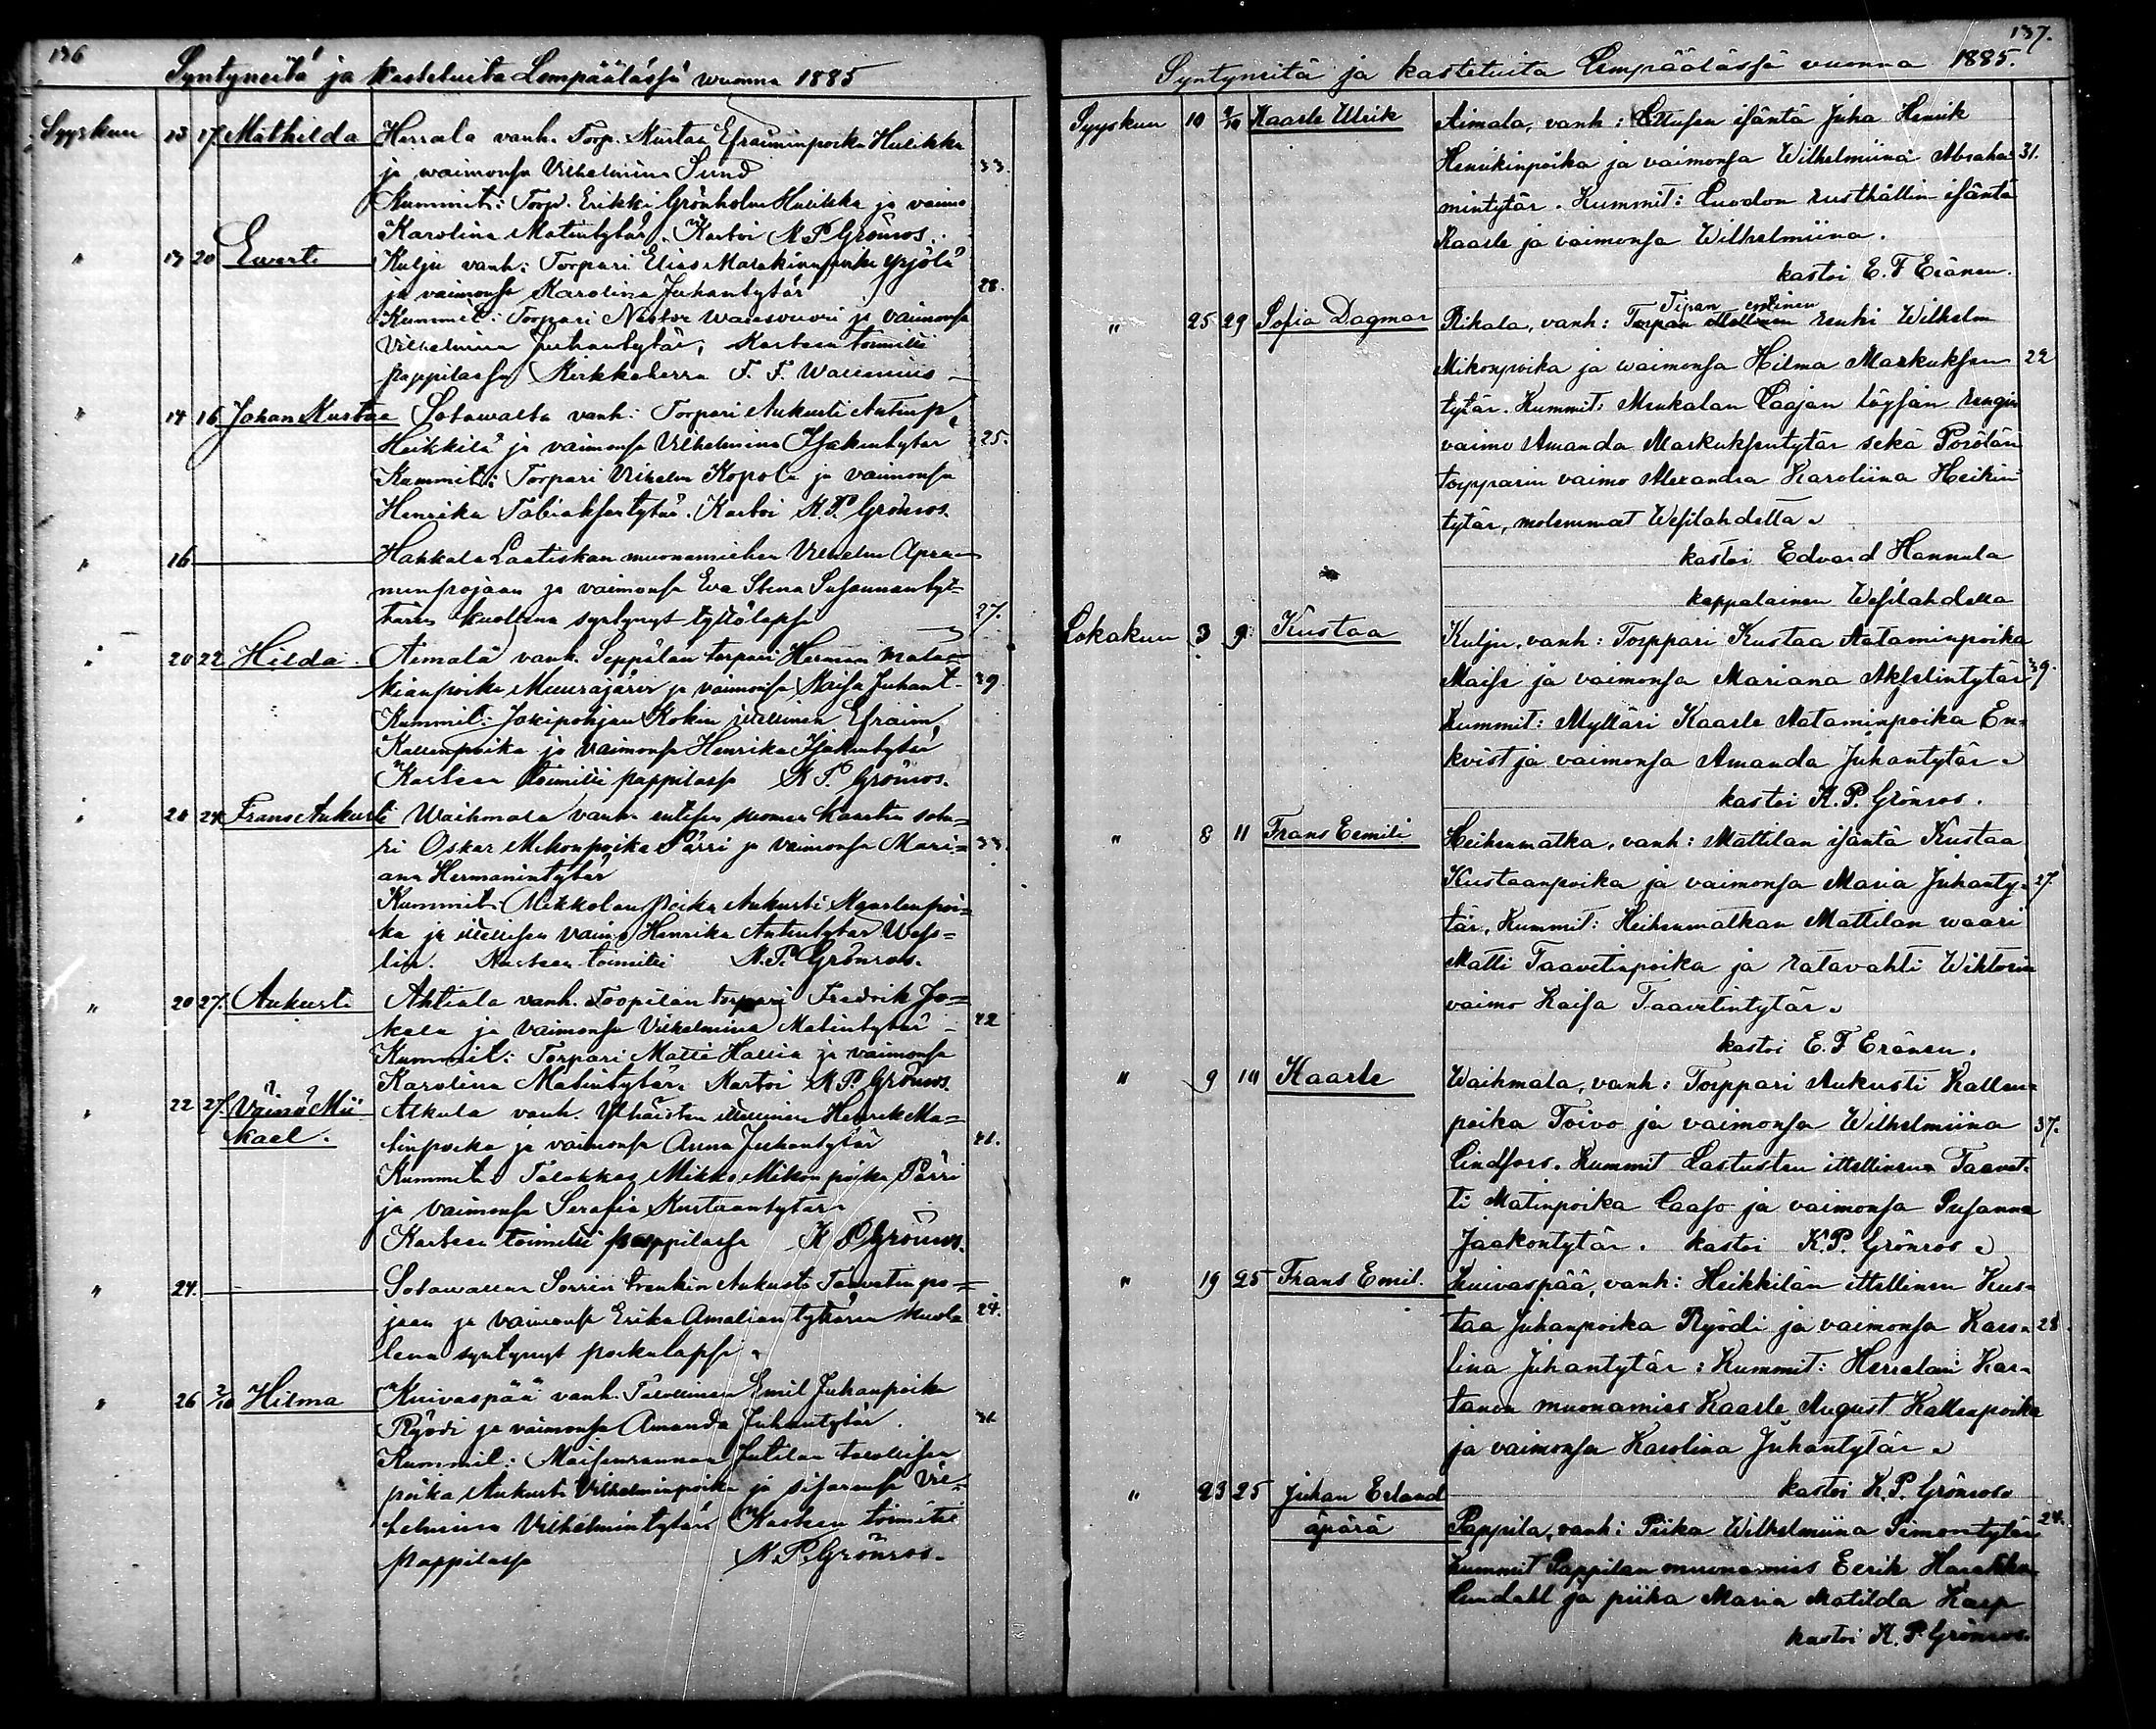 136
Syntyneitä ja kastetuita Lempäälässä wuonna 1885
Syyskuu 13 17. Mathilda Herrala vanh. Torp. Kustaa Efraiminpoika Hulikka
ja waimonsa Vilhelmina Sund 33.
Kummit: Torp. Erikki Grönholm Hulikka ja vaimo
Karolina Matintytär. Kastoi K. P. Grönros.
" 13 20 Ewert Kulju vanh: Torpari Elias Malakiaanpoika Yrjölä
ja vaimonsa Karolina Juhantytär 28.
Kummit: Torpari Nestor ja vaimonsa
Vilhelmina Juhantytär, Kasteen toimitti
pappilassa Kirkkoherra F. F. Wallenius
" 14 16 Johan Kustaa Sotawalta vanh: Torpari Aukusti Antinp.
Heikkilä ja vaimonsa Vilhelmina Isakintytär 25.
Kummit: Torpari Vilhelm Kopola ja vaimonsa
Henrika Tobiaksentytär. Kastoi K. P. Grönros.
" 16 Hakkala Laatiskan muonamiehen Vilhelm Apra-
minpojan ja vaimonsa Eva Stina Susannantyt-
tären kuollena syntynyt tyttölapsi 27.
" 20 22 Hilda Aimala vanh. Seppälän torpari Herman Mala-
kianpoika Muurajärvi ja vaimonsa Kaisa Juhant. 39.
Kummit: Jokipohjan Kokon itellinen Efraim
Kallenpoika ja vaimonsa Henrika Isakintytär
Kasteen toimitti pappilassa K. P. Grönros.
" 20 24 Frans Aukusti Waihmala vanh. entisen suomen kaartin sota-
ri Oskar Mikonpoika Pärri ja vaimonsa Mari- 33.
ana Hermanintytär
Kummit: Mikkolan poika Aukusti Kaarlenpoi-
ka ja itellisen vaimo Henrika Antintytär Wess-
lin. Kasteen toimitti K. P. Grönros.
" 20 27. Aukusti Ahtiala vanh. Toopilan torpari Fredrik Jo-
kela ja vaimonsa Vilhelmina Matintytär 42
Kummit: Torpari Matti Hallia ja vaimonsa
Karolina Matintytär. Kastoi K. P. Grönros.
" 22 27. Väinö Mii- Alkula vanh. Ylhäisten itellinen Henrik Ma-
kael. tinpoika ja vaimonsa Anna Juhantytär 41.
Kummit: Talokkas Mikko Mikonpoika Pärri
ja vaimonsa Serafia Kustaantytär
Kasteen toimitti pappilassa K P Grönros.
" 24. Sotawallan Sorrin trenkin Aukusti Taavetinpo-
jan ja vaimonsa Erika Amalian tyttären kuol- 24.
lena syntynyt poikalapsi.
" 26 2/10 Hilma Kuivaspää vanh. Talollinen Emil Juhanpoika
Ryödi ja vaimonsa Amanda Juhantytär.
Kummit: Maisenrannan Jutilan talollisen
poika Aukusti Vilhelminpoika ja sisarensa Vil-
helmina Vilhelmintytär. Kasteen toimitti
pappilassa K. P. Grönros.
137.
Syntyneitä ja kastetuita Lempäälässä vuonna 1885.
Syyskuu 10 4/10 Kaarle Ulrik Aimala, vanh: isäntä Juha Henrik
Henrikinpoika ja vaimonsa Wilhelmiina Abraha- 31.
mintytär. Kummit: Cuodon rusthållin isäntä
Kaarle ja vaimonsa Wilhelmiina.
kastoi E. F Eränen.
Tipan entinen
" 25 29 Sofia Dagmar Rikala, vanh: renki Wilhelm
Mikonpoika ja waimonsa Hilma Markuksen 22
tytär. Kummit: Menkalan Laajan löysän rengin
vaimo Amanda Markuksentytär sekä Porölän
torpparin vaimo Alexandra Karoliina Heikin
tytär, molemmat Wesilahdella.
kastoi Edvard Hannula
kappalainen Wesilahdella
Lokakuu 3 9. Kustaa Kulju, vanh: Torppari Kustaa Aataminpoika
Maisi ja vaimonsa Mariana Akselintytär 39.
Kummit: Mylläri Kaarle Aataminpoika En-
kvist ja vaimonsa Amanda Juhantytär.
kastoi K. P. Grönros.
" 8 11 Frans Eemili. Heihenmatka, vanh: Mattilan isäntä Kustaa
Kustaanpoika ja vaimonsa Maria Juhanty- 27.
tär, Kummit: Heihenmatkan Mattilan waari
Matti Taavetinpoika ja ratavahti Wiktorin
vaimo Kaisa Taavetintytär.
kastoi E. F Eränen.
" 9 14 Kaarle Waihmala, vanh: Torppari Aukusti Kallen-
poika Toivo ja vaimonsa Wilhelmiina 37.
Lindfors. Kummit Lastusten itellinen Taavet-
ti Matinpoika Laaso ja vaimonsa Susanna
Jaakontytär. kastoi K. P. Grönros.
" 19 25 Frans Emil. Kuivaspää, vanh: Heikkilän ittellinen Kus-
taa Juhanpoika Ryödi ja vaimonsa Karo- 28.
lina Juhantytär: Kummit: Herralan Kar-
tanon muonamies Kaarle August Kallenpoika
ja vaimonsa Karolina Juhantytär.
kastoi K. P. Grönros.
" 23 25 Juhan Erland
äpärä Pappila, vanh: Piika Wilhelmiina Simontytär 24.
Kummit Pappilan muonamies Eerik Harakka
Lundahl ja piika Maria Matilda Karp
kastoi K. P. Grönros.